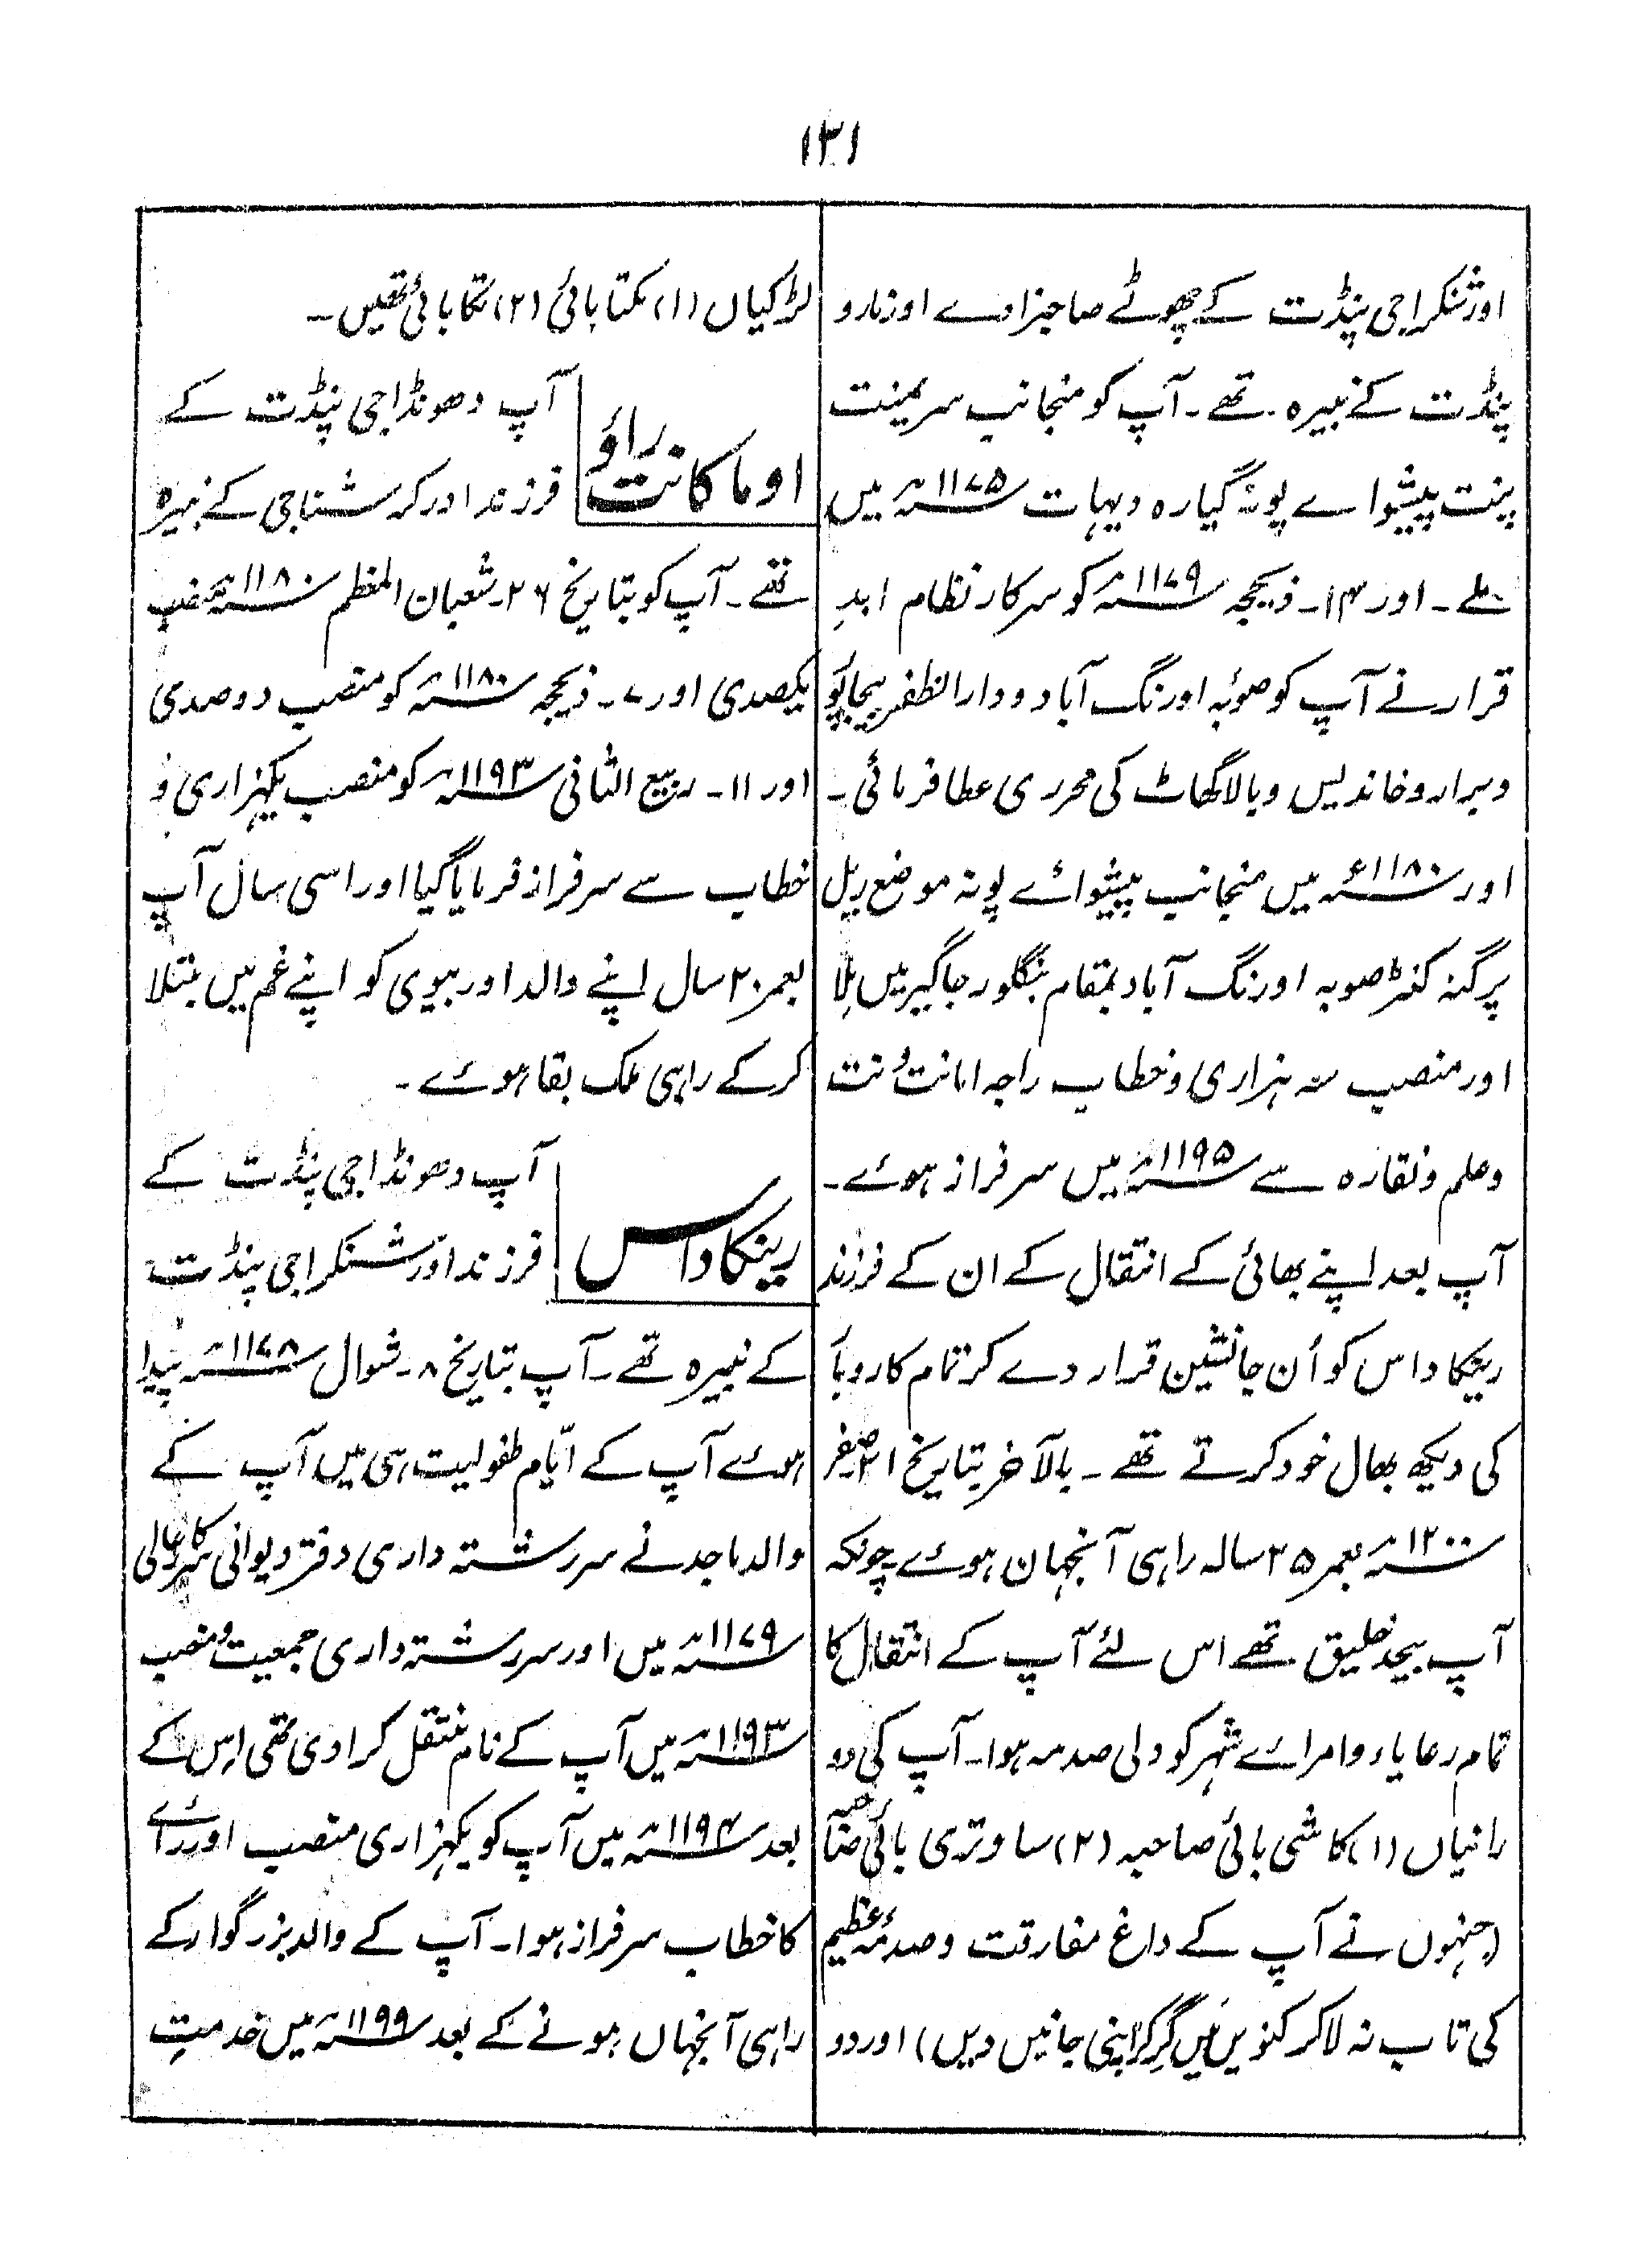 ۱۳۱
اور شنکراجی پنڈت کے چھوٹے صاحبزادے اور نارو
پنڈت کے نبیرہ تھے۔ آپ کو منجانب سریمنت
پنت پیشواے پونہ گیارہ دیہات سنہ ۱۱۷۵ھ میں
ملے۔ اور ۱۴۔ ذیحجہ سنہ ۱۱۷۹ھ کو سرکار نظام ابد
قرار نے آپ کو صوبہ اورنگ آباد و دارالظفر بیجاپور
وبرار و خاندیس و بالاگھاٹ کی محرری عطا فرمائی۔
اور سنہ ۱۱۸۰ء میں منجانب پیشوائے پونہ موضع ریل
پرگنہ کنڑ صوبہ اورنگ آباد بمقام بنگلور جاگیر میں ملا
اور منصب سہ ہزاری و خطاب راجہ امانت ونت
وعلم ونقارہ سے سنہ ۱۱۹۵ھ میں سرفراز ہوئے۔
آپ بعد اپنے بھائی کے انتقال کے ان کے فرزند
رینکا داس کو اُن جانشین قرار دے کر تمام کاروبار
کی دیکھ بھال خود کرتے تھے۔ بالآخر بتاریخ ۲۱ صفر
سنہ ۱۲۰۰ھ بعمر ۲۵ سالہ راہی آنجہان ہوئے چونکہ
آپ بیحد خلیق تھے اس لئے آپ کے انتقال کا
تمام رعایاء وامراے شہر کو دلی صدمہ ہوا۔ آپ کی دو
رانیاں (۱) کاشی بائی صاحبہ (۲) ساوتری بائی صاحبہ
(جنہوں نے آپ کے داغ مفارقت و صدمۂ عظیم
کی تاب نہ لاکر کنویں میں گر کر اپنی جانیں دیں) اور دو
لڑکیاں (۱) مکتا بائی (۲) تکا بائی تھیں۔
اوماکانت راؤ
آپ دھونڈاجی پنڈت کے
فرزند اور کرشناجی کے نبیرہ
تھے۔ آپ کو بتاریخ ۲۶۔ شعبان المعظم سنہ ۱۱۸۰ھ منصب
یکصدی اور ۷۔ ذیحجہ سنہ ۱۱۸۰ھ کو منصب دوصدی
اور ۱۱۔ ربیع الثانی سنہ ۱۱۹۳ھ کو منصب یکہزاری و
خطاب سے سرفراز فرمایا گیا اور اسی سال آپ
بعمر ۲۰ سال اپنے والد اور بیوی کو اپنے غم میں مبتلا
کرکے راہی ملک بقا ہوئے۔
رینکاداس
آپ دھونڈاجی پنڈت کے
فرزند اور شنکراجی پنڈت
کے نبیرہ تھے۔ آپ بتاریخ ۸۔ شوال سنہ ۱۱۷۸ھ پیدا
ہوئے آپ کے ایّام طفولیت ہی میں آپ کے
والد ماجد نے سررشتہ داری دفتر دیوانی سرکارعالی
سنہ ۱۱۷۹ھ میں اور سررشتہ داری جمعیت ومنصب
سنہ ۱۱۹۳ھ میں آپ کے نام منتقل کرادی تھی اس کے
بعد سنہ ۱۱۹۴ھ میں آپ کو یکہزاری منصب اور رائے
کا خطاب سرفراز ہوا۔ آپ کے والد بزرگوار کے
راہی آنجہاں ہونے کے بعد سنہ ۱۱۹۹ھ میں خدمتِ